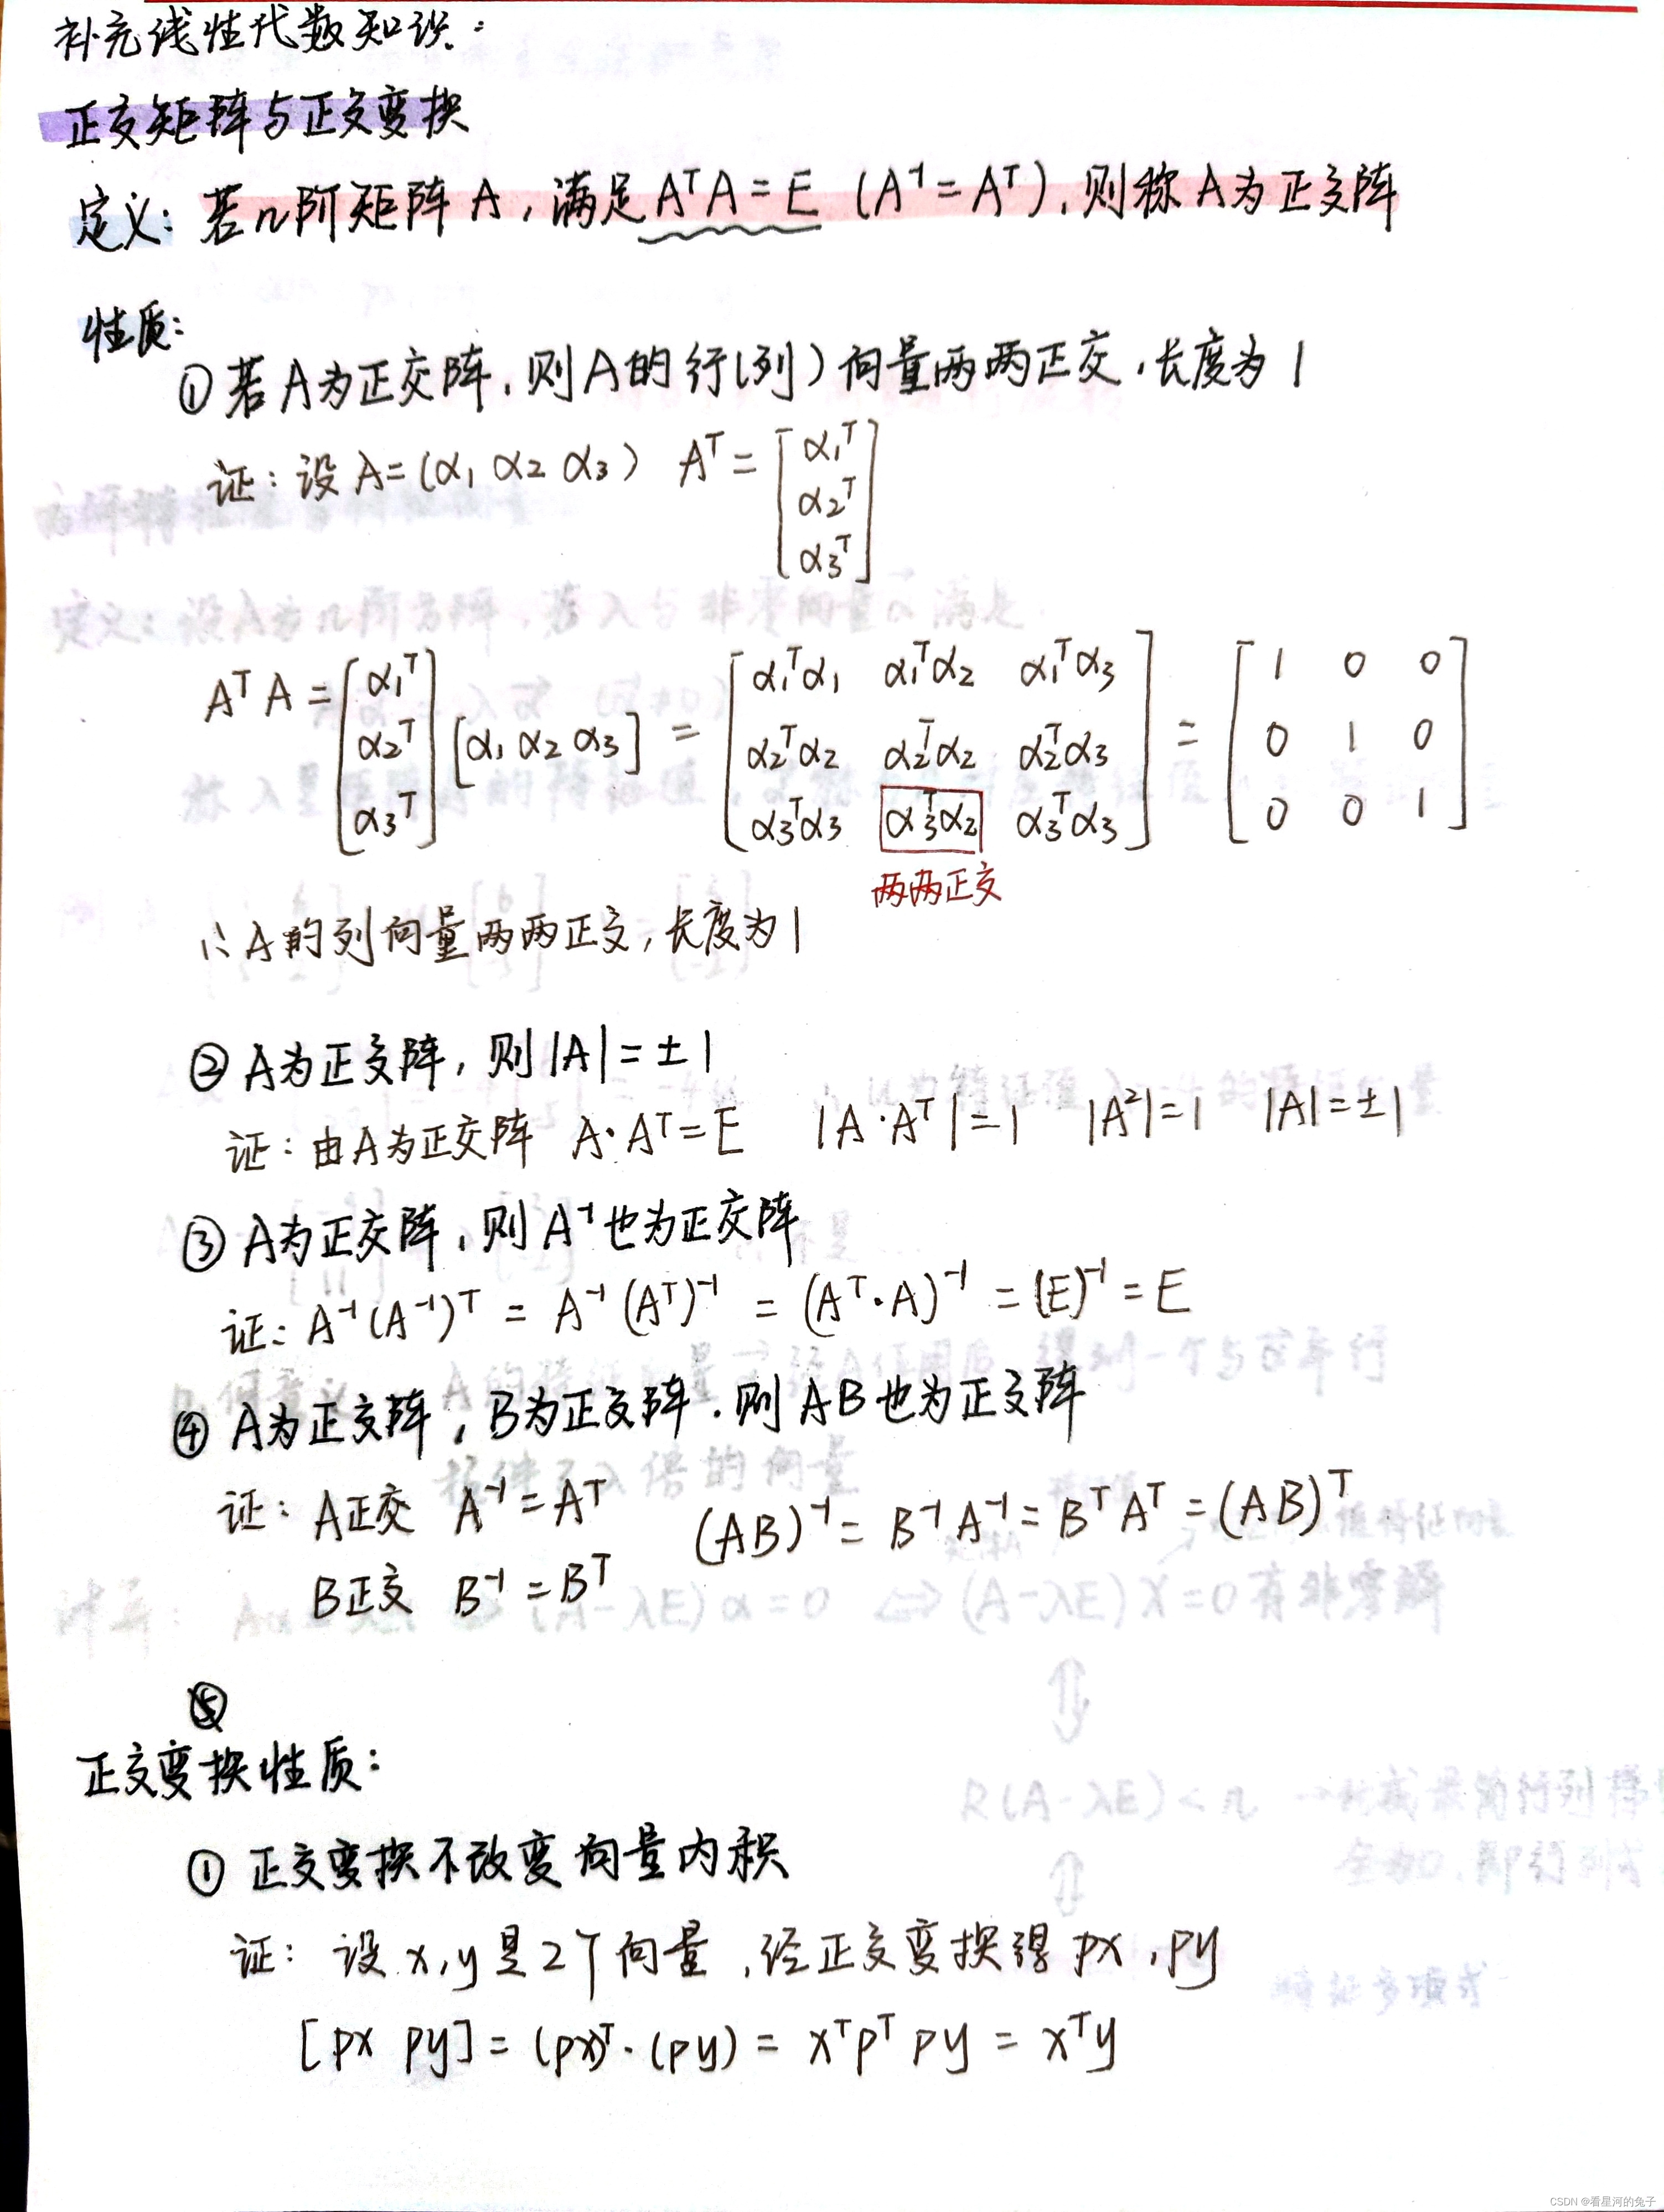 补充线性代数知识:
正交矩阵与正交变换
定义: 若n阶矩阵 A, 满足 AᵀA = E (A⁻¹ = Aᵀ), 则称 A为正交阵
性质:
① 若 A为正交阵, 则A的行(列)向量两两正交, 长度为1
证: 设 A=(α₁ α₂ α₃) Aᵀ = [α₁ᵀ
α₂ᵀ
α₃ᵀ]
AᵀA = [α₁ᵀ α₂ᵀ α₃ᵀ] [α₁ α₂ α₃] = [α₁ᵀα₁ α₁ᵀα₂ α₁ᵀα₃
α₂ᵀα₂ α₂ᵀα₂ α₂ᵀα₃
α₃ᵀα₃ α₃ᵀα₂ α₃ᵀα₃] = [1 0 0
0 1 0
0 0 1]
两两正交
∴ A的列向量两两正交, 长度为1
② A为正交阵, 则|A| = ±1
证: 由A为正交阵 A·Aᵀ=E |A·Aᵀ|=1 |A²|=1 |A|=±1
③ A为正交阵, 则A⁻¹也为正交阵
证: A⁻¹(A⁻¹)ᵀ = A⁻¹(Aᵀ)⁻¹ = (Aᵀ·A)⁻¹ = (E)⁻¹ = E
④ A为正交阵, B为正交阵. 则AB也为正交阵
证: A正交 A⁻¹=Aᵀ (AB)⁻¹= B⁻¹A⁻¹= BᵀAᵀ =(AB)ᵀ
B正交 B⁻¹=Bᵀ
⑤
正交变换性质:
① 正交变换不改变向量内积
证: 设 x,y是2个向量, 经正交变换得 px, py
[px py] = (px)ᵀ·(py) = xᵀpᵀpy = xᵀy
CSDN @看星河的兔子